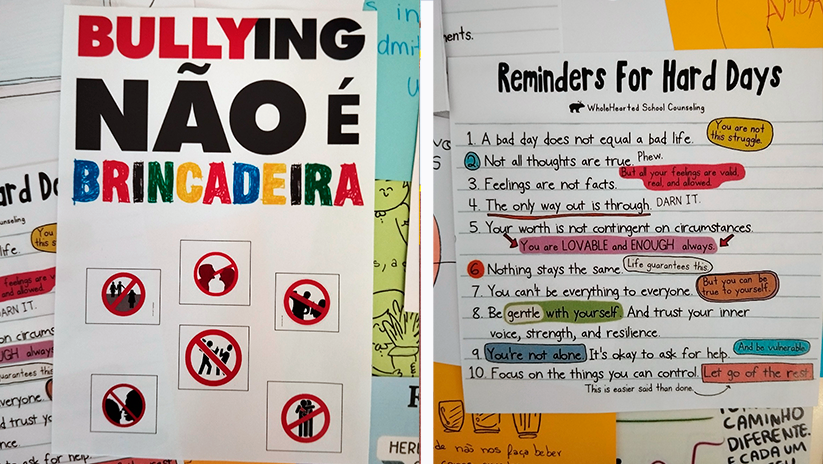 BULLYING
NÃO É
BRINCADEIRA
s in
dmit
ard D
unseling
ife.
You
this s
feelings are
and allowed.
ARN IT.
on circums
GH always
guarantees this
everyone.
d trust yo
nce.
ask for help.
HER
ents.
AMOA
Reminders For Hard Days
WholeHearted School Counseling
1. A bad day does not equal a bad life. You are not this struggle.
2 Not all thoughts are true. Phew.
3. Feelings are not facts. But all your feelings are valid, real, and allowed.
4. The only way out is through. DARN IT.
5. Your worth is not contingent on circumstances.
You are LOVABLE and ENOUGH always.
6 Nothing stays the same. Life guarantees this.
7. You can't be everything to everyone. But you can be true to yourself.
8. Be gentle with yourself. And trust your inner
voice, strength, and resilience.
9. You're not alone. It's okay to ask for help. And be vulnerable.
10. Focus on the things you can control. Let go of the rest.
This is easier said than done.
de não nos faça beber
CAMINHO
DIFERENTE.
E CADA UM